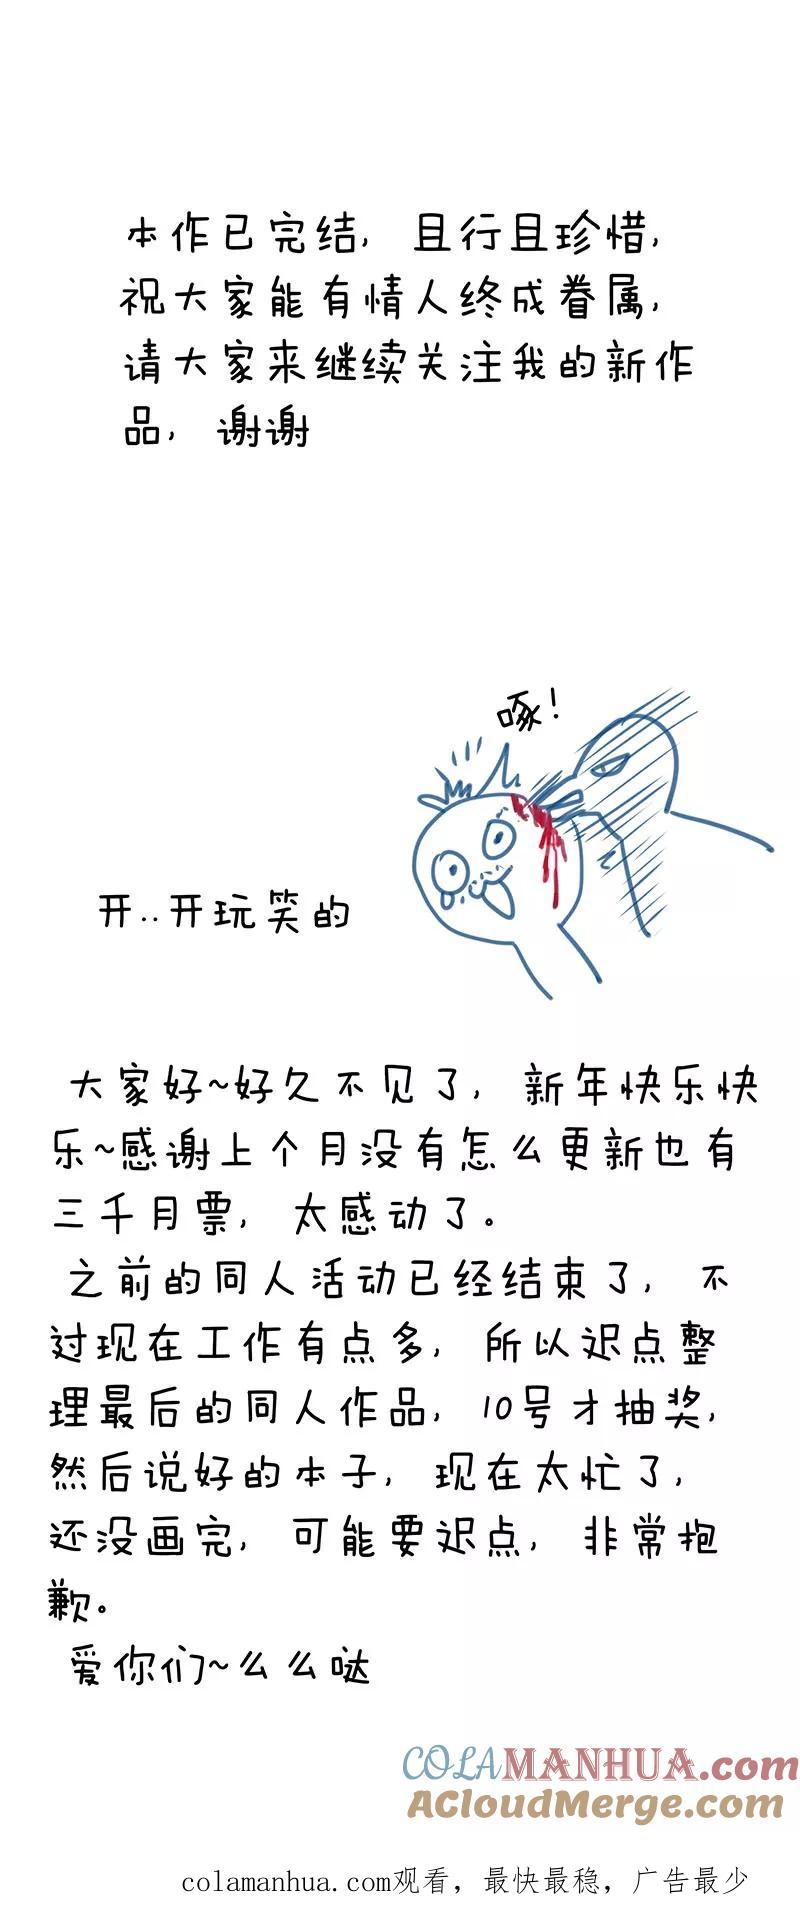 本作已完结，且行且珍惜，
祝大家能有情人终成眷属，
请大家来继续关注我的新作
品，谢谢
啄！
开..开玩笑的
大家好~好久不见了，新年快乐快
乐~感谢上个月没有怎么更新也有
三千月票，太感动了。
之前的同人活动已经结束了，不
过现在工作有点多，所以迟点整
理最后的同人作品，10号才抽奖，
然后说好的本子，现在太忙了，
还没画完，可能要迟点，非常抱
歉。
爱你们~么么哒
COLAMANHUA.com
ACloudMerge.com
colamanhua.com观看，最快最稳，广告最少